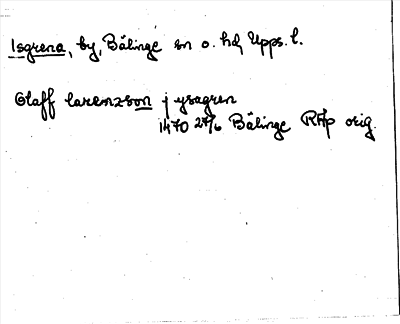 Isgrena, by, Bälinge sn o. hd, Upps. l.
Olaff larenzson j ysagren
1470 27/6 Bälinge RAp orig.